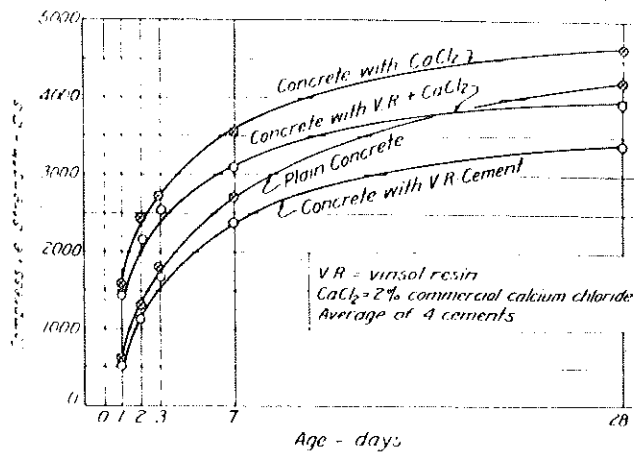 5000
4000
3000
2000
1000
0
Concrete with CaCl2
Concrete with V.R + CaCl2
Plain Concrete
Concrete with V R Cement
V R = vinsol resin
CaCl2 = 2% commercial calcium chloride
Average of 4 cements
0 1 2 3 7 28
Age - days